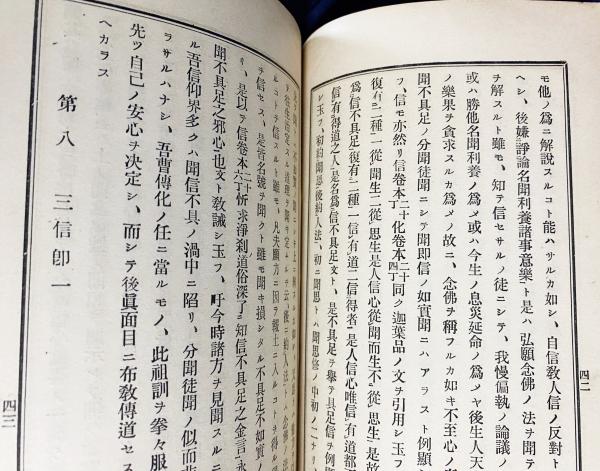 モ他ノ爲ニ解說スルコト能ハサルカ如シ、自信敎人信ノ反對ト
ヘシ、後嫌諍論名聞利養諸事意樂ト是ハ弘願念佛ノ法ヲ聞テ
ヲ解スルト雖モ、知テ信セサルノ徒ニシテ、我慢偏執ノ論議ノ
或ハ勝他名聞利養ノ爲メ或ハ今生ノ息災延命ノ爲メヤ後生人天
ノ樂果ヲ貪求スルカ爲メノ故ニ、念佛ヲ稱フルカ如キ不至心ノ
聞不具足ノ分聞徒聞ニシテ聞卽信ノ如實聞ニハアラスト例顯
フ、信モ亦然リ信卷本二十化卷本二十四丁同ク迦葉品ノ文ヲ引用シ玉フ
復有二種一從聞生二從思生是人信心從聞而生不從思生是故
爲信不具足復有二種一信有道二信得者是人信心唯信有道都
信有得道之人是名爲信不具足文ト、是不具足ヲ擧テ具足信ヲ例
シ玉フ、初約聞思後約人法、初ニ聞思トハ聞思修ノ中初ノ二ナリ
四二
ヲ信セス、是皆名號ヲ聞クト雖モ聞キ損シタル不具足不如實ノ
リ、是以テ信卷本二十六丁忻求淨刹道俗深了知信不具足之金言永
聞不具足之邪心也文ト敎誡シ玉フ、吁今時諸方ヲ見聞スルニ
ル吾信仰界多クハ聞信不具ノ渦中ニ陷リ、分聞徒聞ノ似而非
ラサルハナシ、吾曹傳化ノ任ニ當ルモノ、此祖訓ヲ拳々服
先ツ自己ノ安心ヲ決定シ、而シテ後眞面目ニ布敎傳道セス
ヘカラス
第八　三信卽一
四三